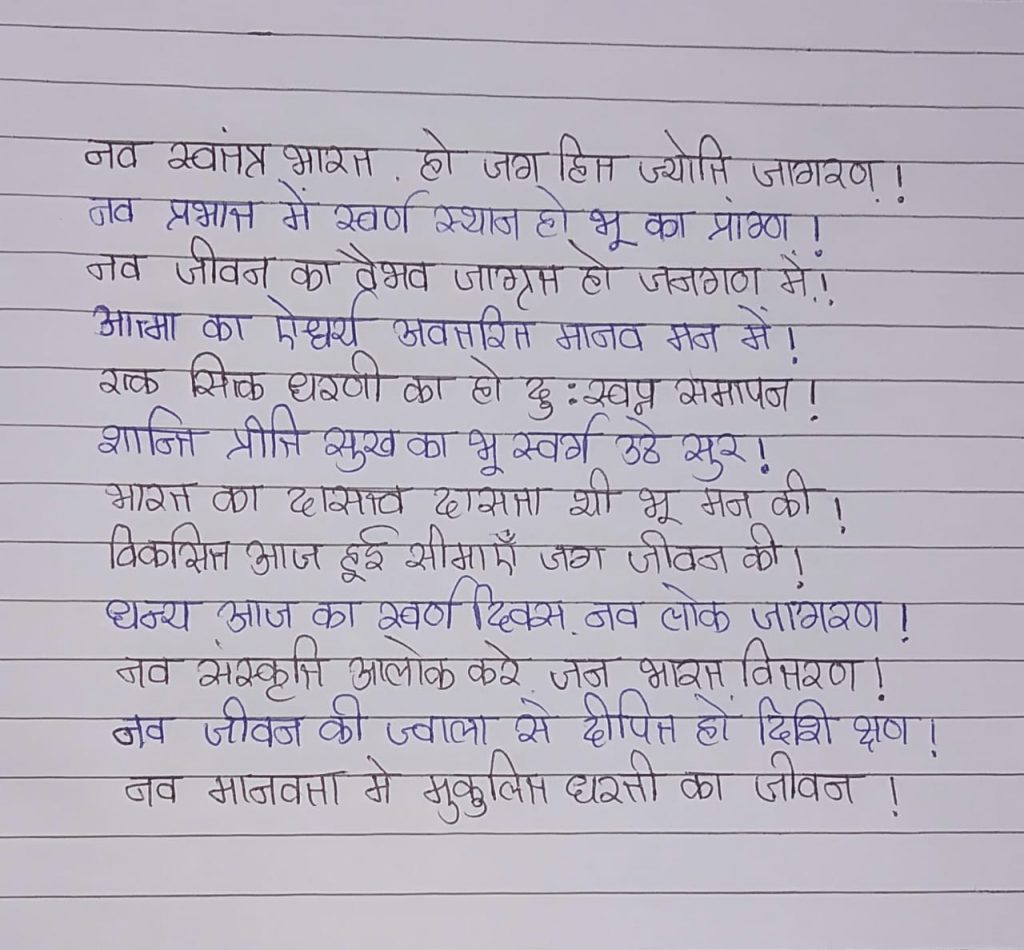 नव स्वतंत्र भारत हो जग हित ज्योति जागरण !
नव प्रभात में स्वर्ण स्थान हो भू का प्रांगण !
नव जीवन का वैभव जागृत हो जनगण में !
आत्मा का ऐश्वर्य अवतरित मानव मन में !
रक्त सिक्त धरणी का हो दु:स्वप्न समापन !
शान्ति प्रीति सुख का भू स्वर्ग उठे सुर !
भारत का दासत्व दासता थी भू मन की !
विकसित आज हुई सीमाएँ जग जीवन की !
धन्य आज का स्वर्ण दिवस, नव लोक जागरण !
नव संस्कृति आलोक करे, जन भारत वितरण !
नव जीवन की ज्वाला से दीपित हों दिशि क्षण !
नव मानवता मे मुकुलित धरती का जीवन !